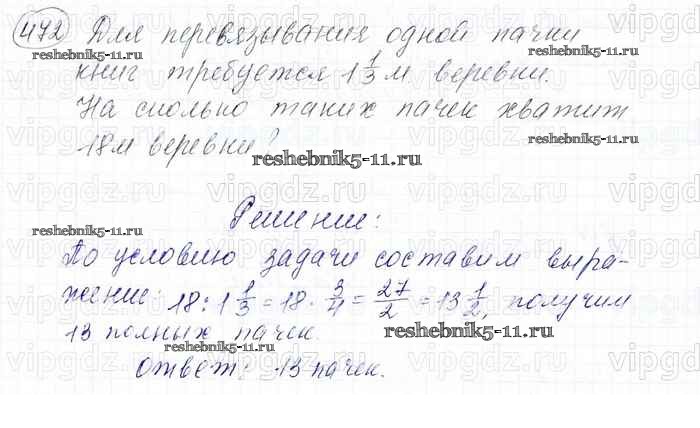 472 Для перевязывания одной пачки
книг требуется 1 1/3 м веревки.
На сколько таких пачек хватит
18м веревки?
Решение:
По условию задачи составим выра-
жение: 18 : 1 1/3 = 18 · 3/4 = 27/2 = 13 1/2, получим
13 полных пачек.
Ответ: 13 пачек.
reshebnik5-11.ru
reshebnik5-11.ru
reshebnik5-11.ru
reshebnik5-11.ru
reshebnik5-11.ru
vipgdz.ru